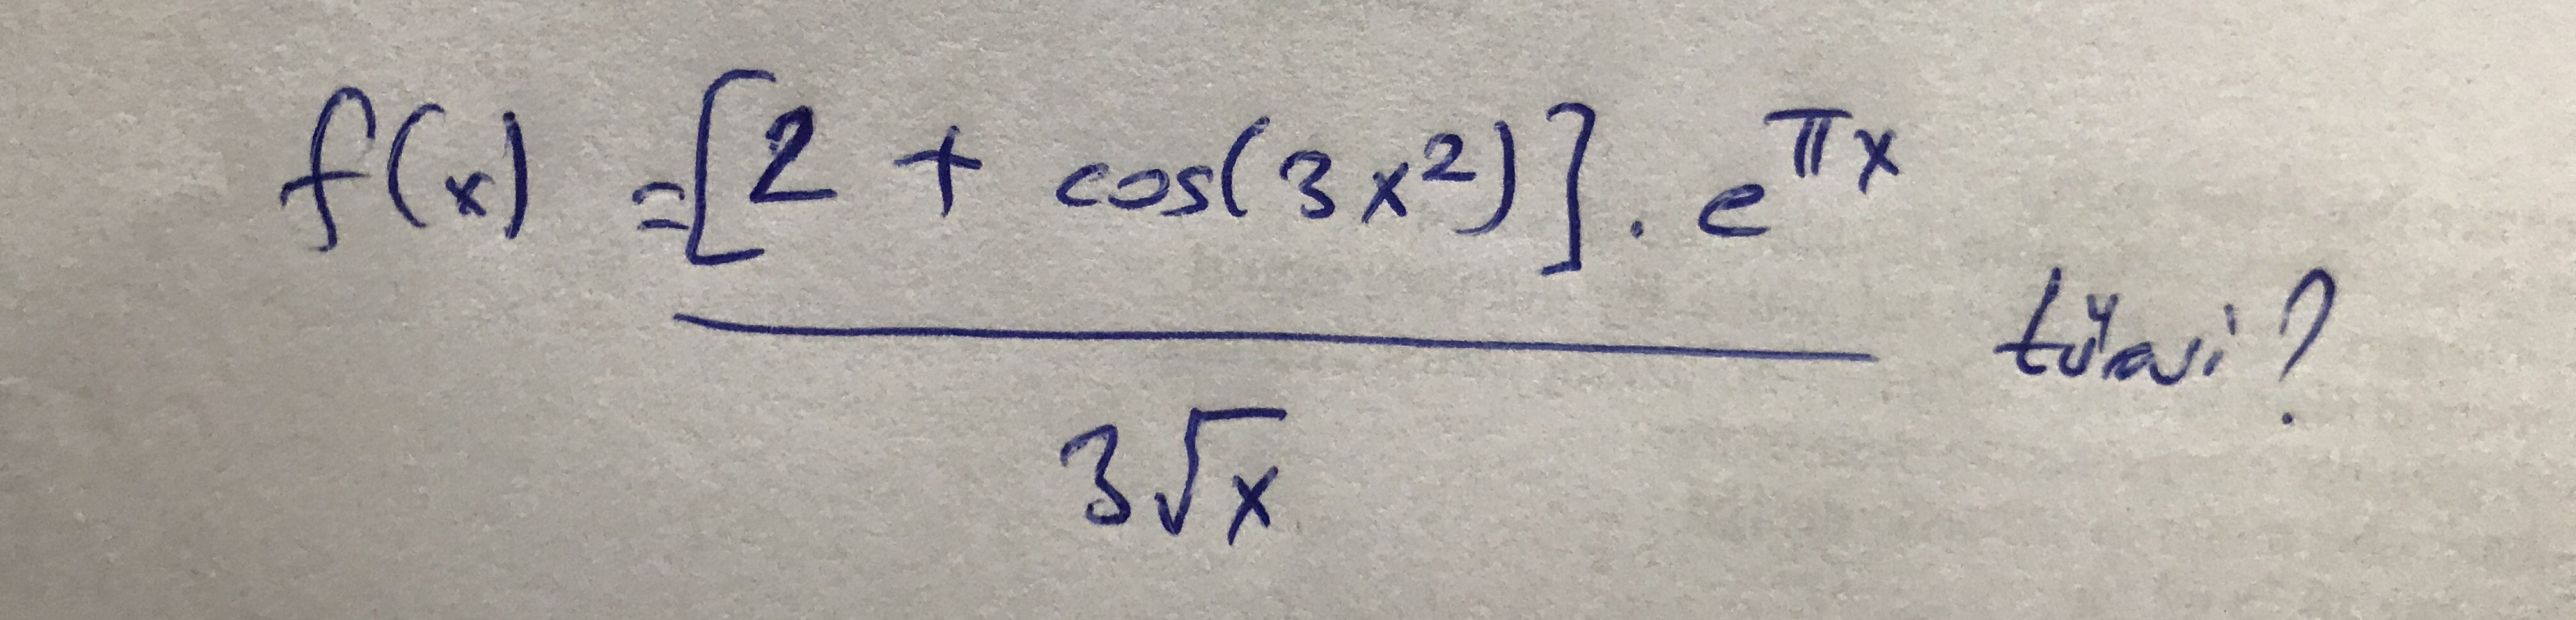 f(x) = [2 + cos(3x²)] . e^πx
türevi?
3√x